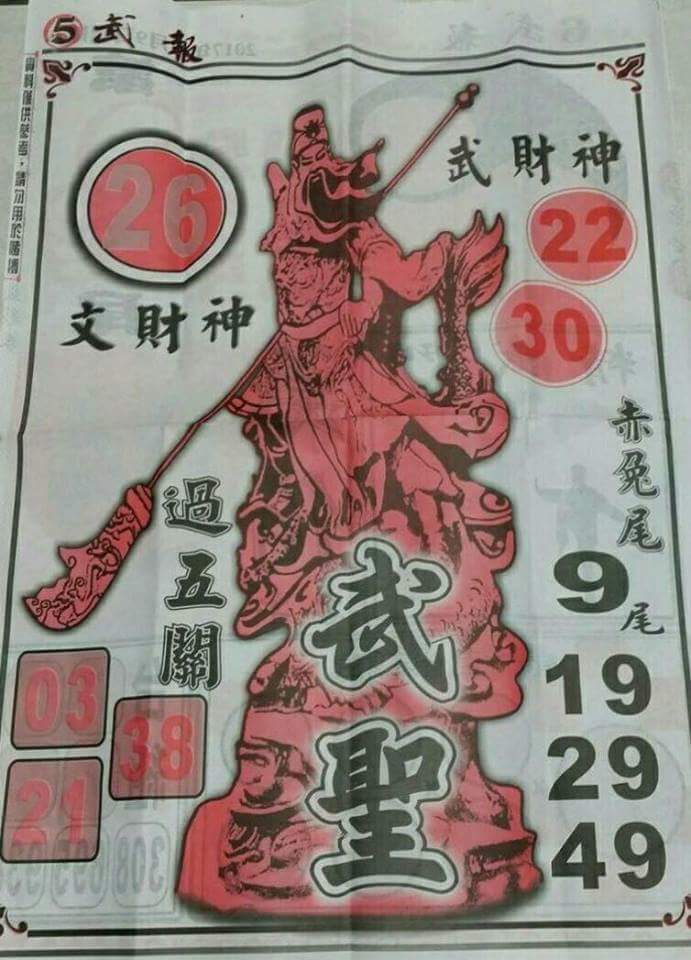 5 武報
資料僅供參考，請勿用於賭博
26
文財神
武財神
22
30
赤兔尾
9尾
19
29
49
過五關
03
38
21
武聖